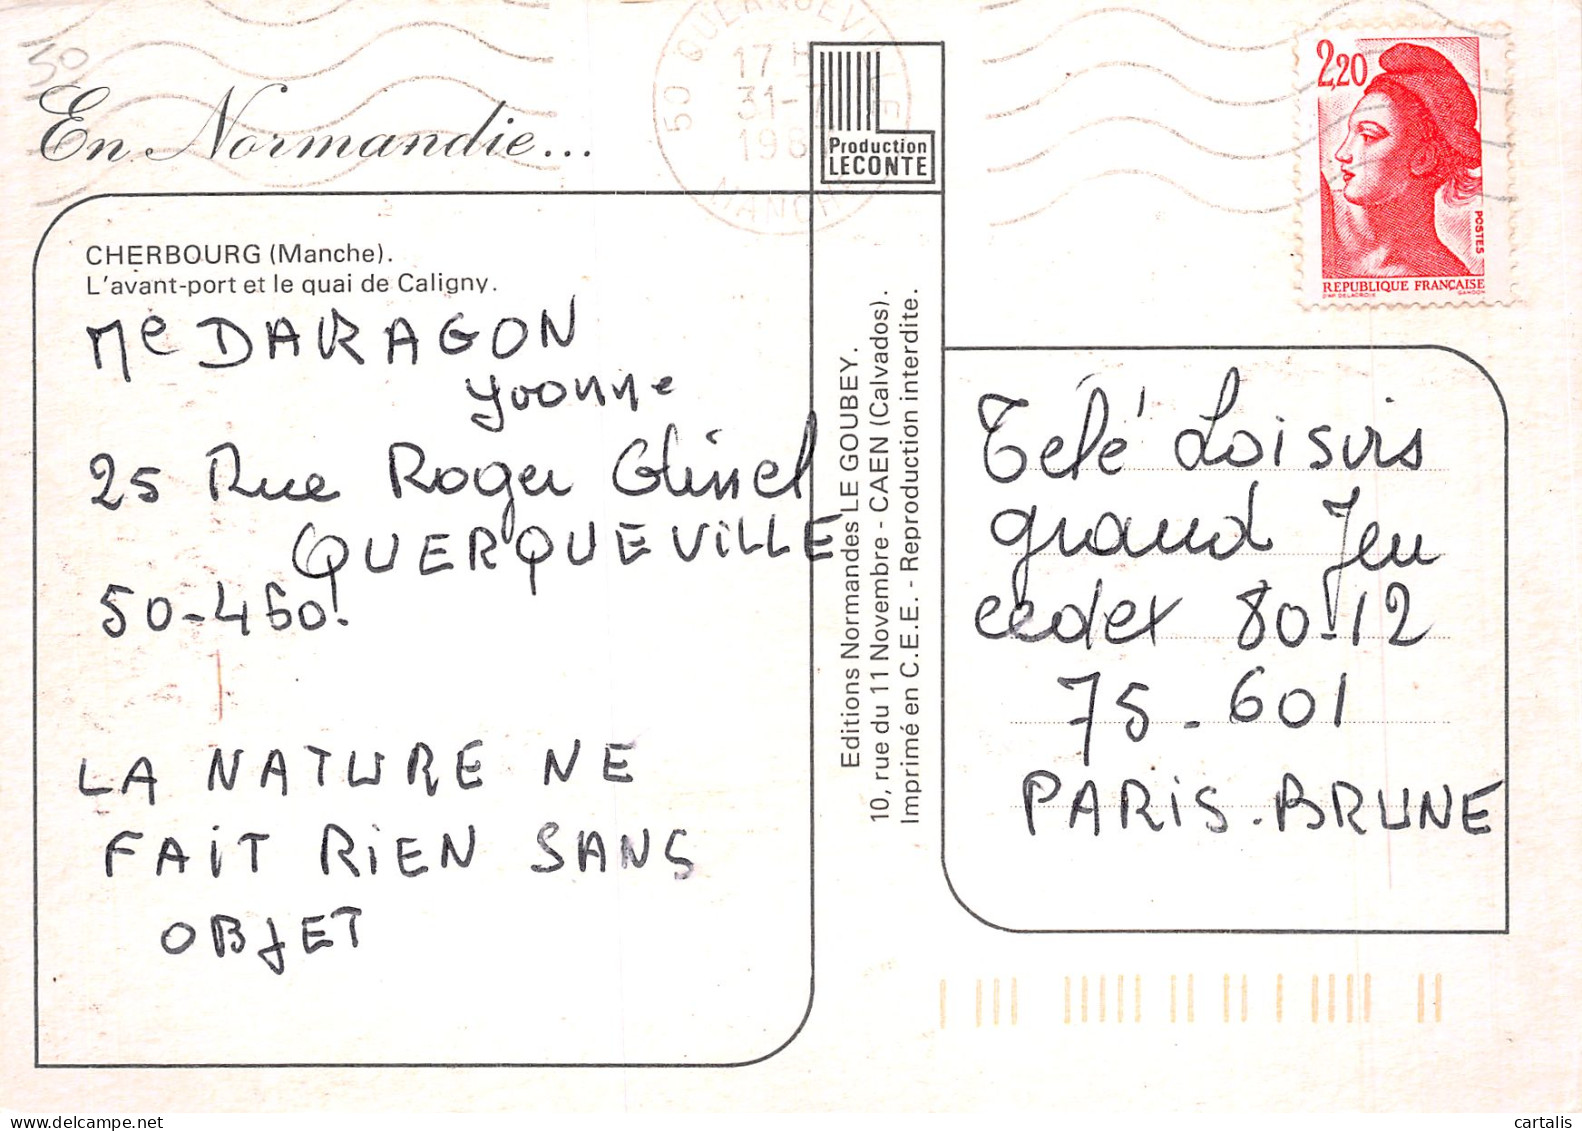 50
En Normandie...
50 QUERQUEVILLE
17 H
31-7
198
MANCHE
Production
LECONTE
2,20
POSTES
REPUBLIQUE FRANÇAISE
D'AP. DELACROIX GANDON
CHERBOURG (Manche).
L'avant-port et le quai de Caligny.
Me DARAGON
Yvonne
25 Rue Roger Glinel
QUERQUEVILLE
50-460!
LA NATURE NE
FAIT RIEN SANS
OBJET
Editions Normandes LE GOUBEY.
10, rue du 11 Novembre - CAEN (Calvados).
Imprimé en C.E.E. - Reproduction interdite.
Télé Loisirs
grand Jeu
cedex 80-12
75-601
PARIS-BRUNE
cartalis